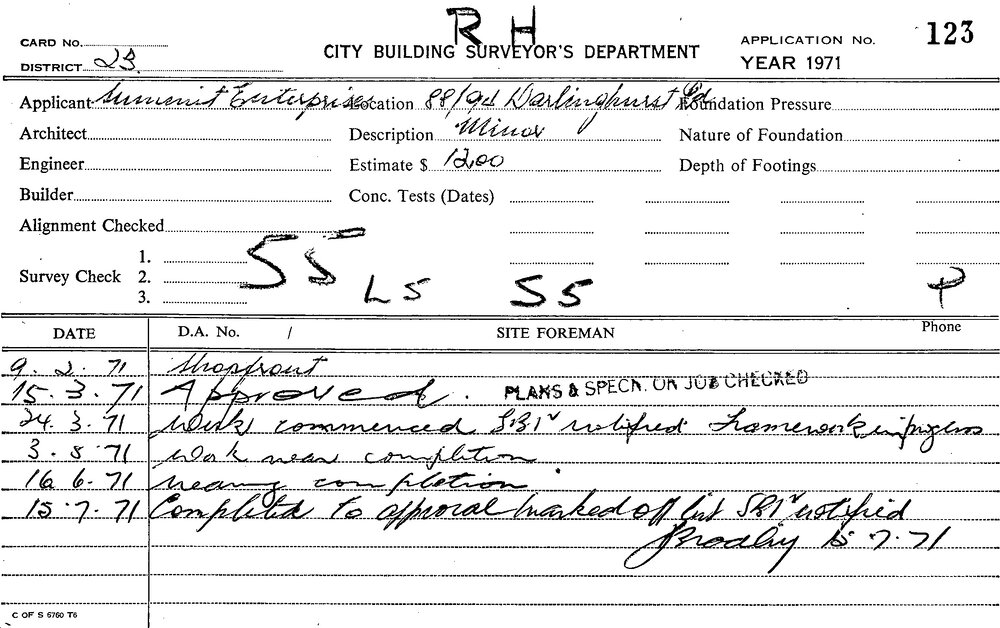 R H
CARD No.
CITY BUILDING SURVEYOR'S DEPARTMENT
APPLICATION No. 123
DISTRICT 23.
YEAR 1971
Applicant Summit Enterprises Location 88/94 Darlinghurst Rd Foundation Pressure
Architect Description Minor Nature of Foundation
Engineer Estimate $ 1200 Depth of Footings
Builder Conc. Tests (Dates)
Alignment Checked
Survey Check 1. 2. 3.
S S
L S S S P
DATE D.A. No. / SITE FOREMAN Phone
9. 2. 71 Shopfront
15. 3. 71 Approved. PLANS & SPECN. ON JOB CHECKED
24. 3. 71 Work commenced notified Framework in progress
3. 5. 71 Work near completion
16 6. 71 nearing completion
15. 7. 71 Completed to approval marked off list notified
15. 7. 71
C OF S 6760 T6